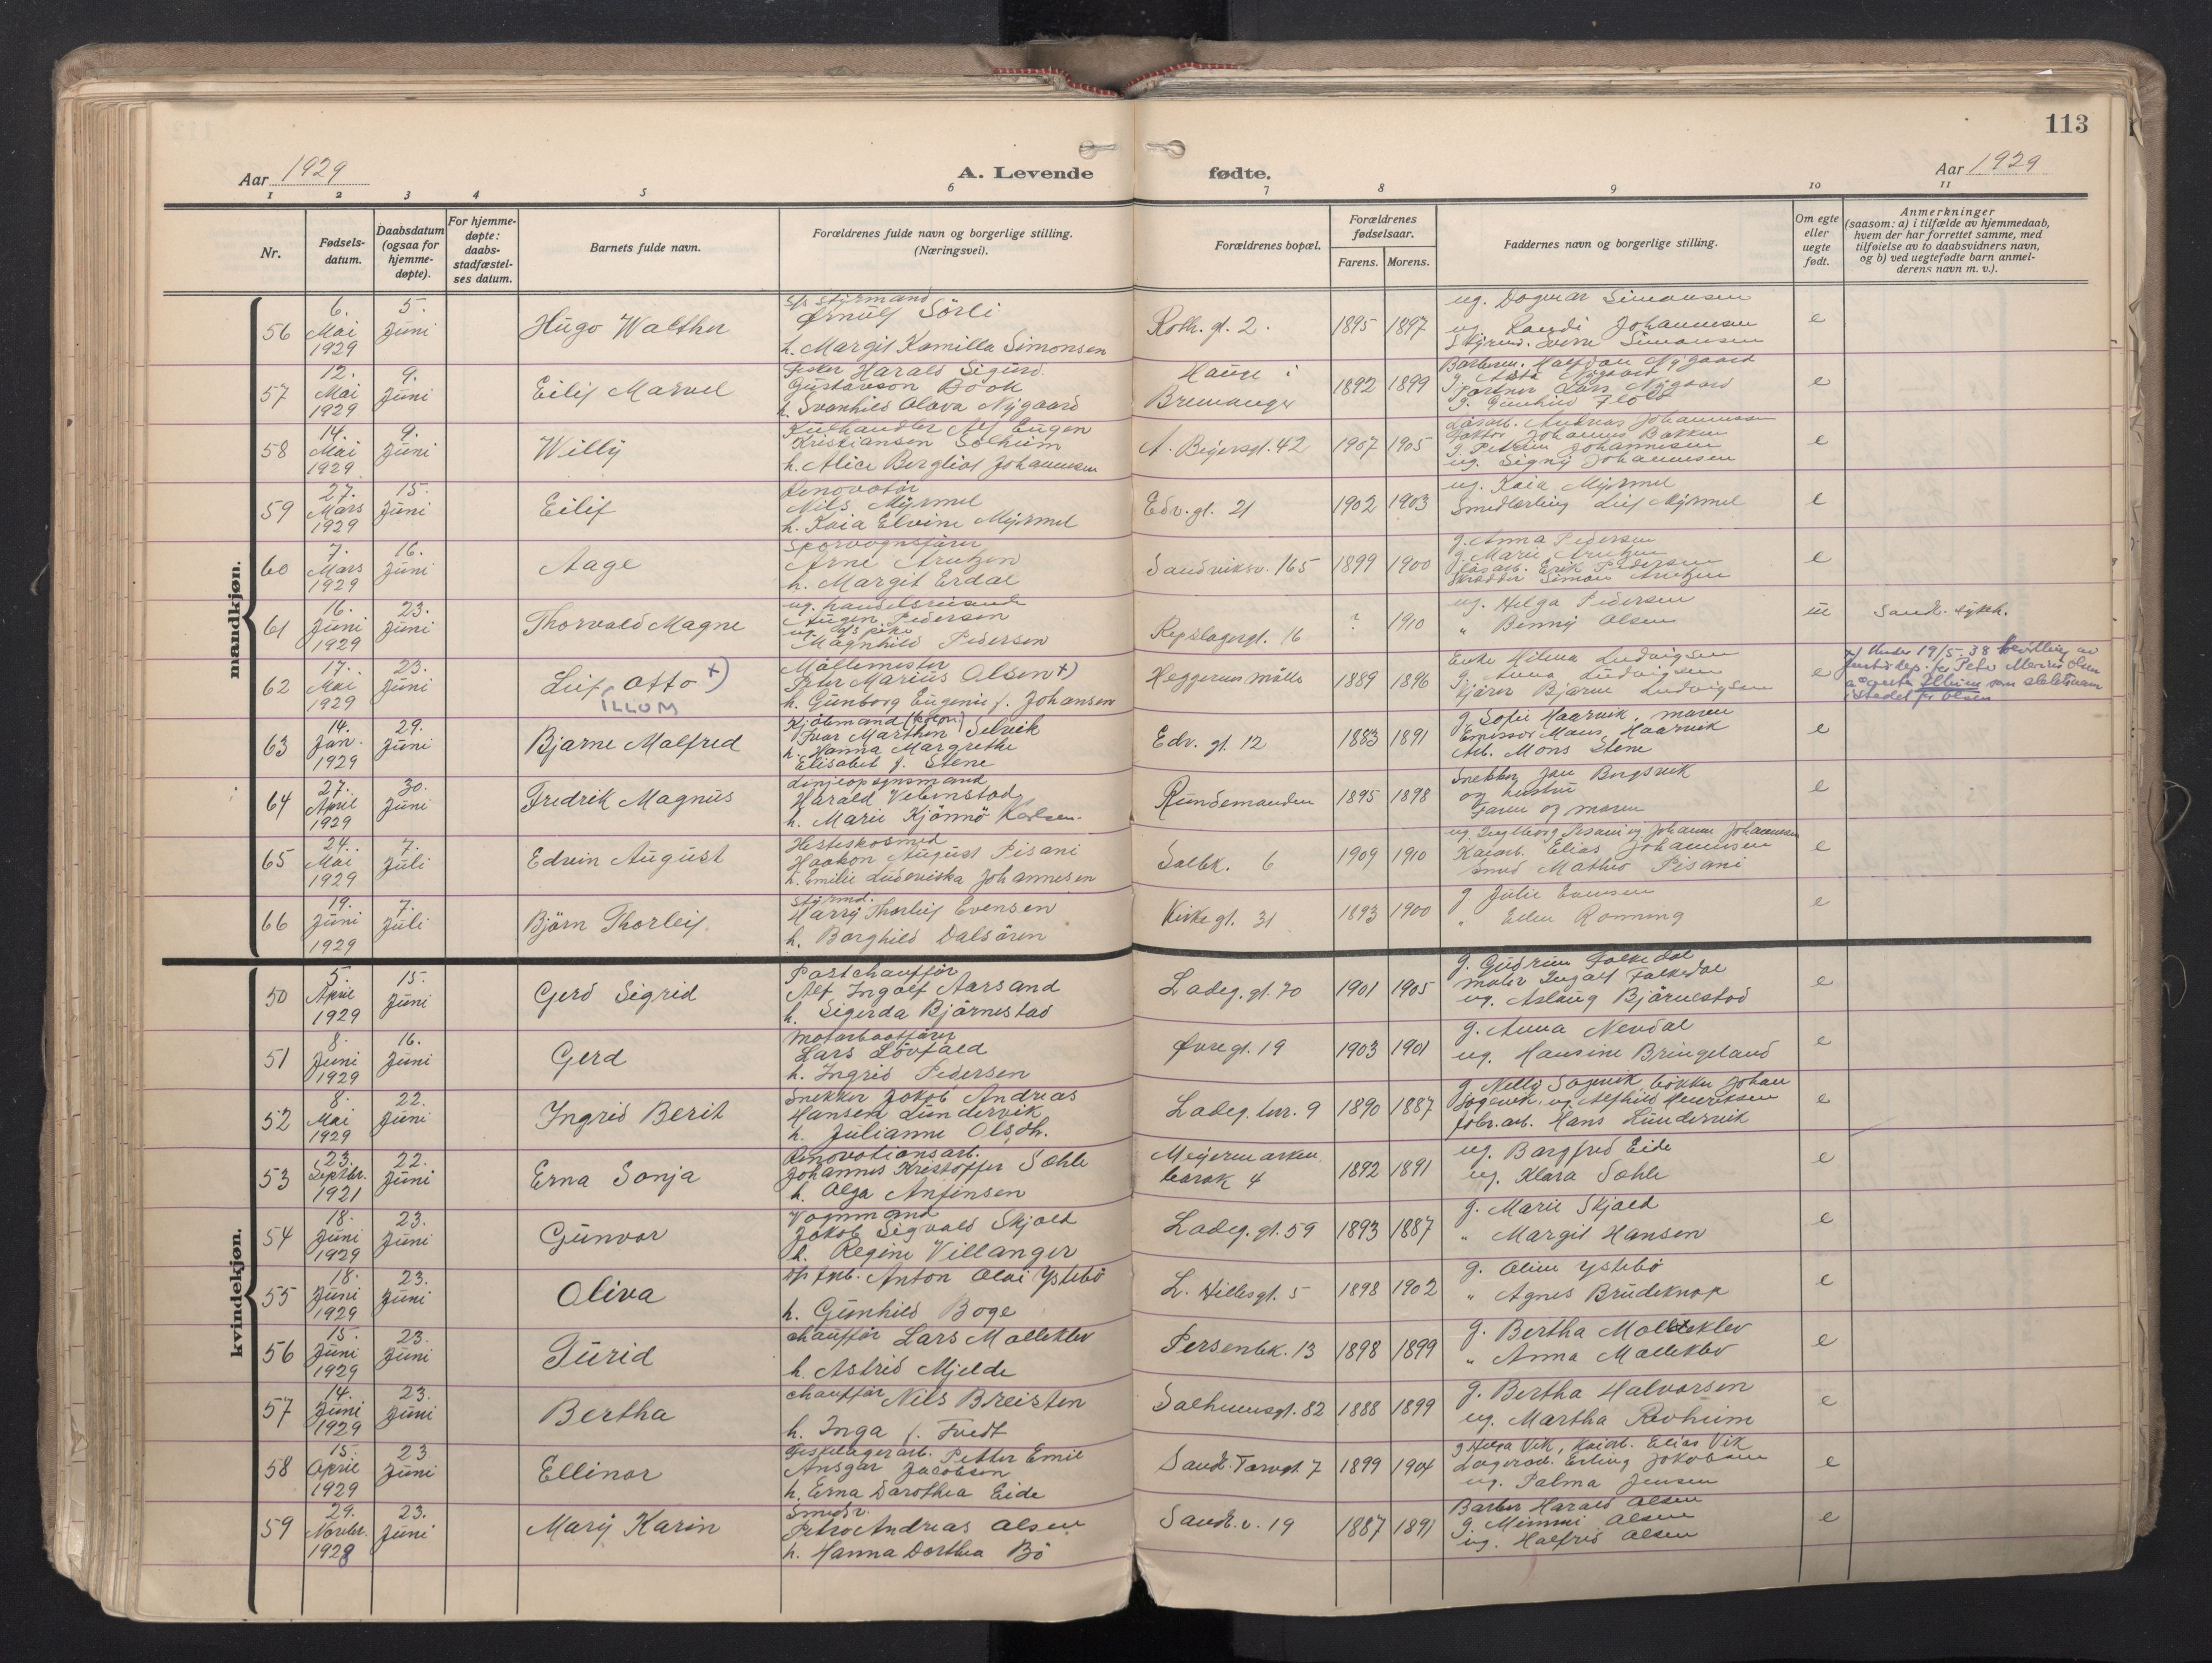 113
Aar 1929
A. Levende fødte.
Aar 1929
1 2 3 4 5 6 7 8 9 10 11
Nr.
Fødsels-
datum.
Daabsdatum
(ogsaa for
hjemme-
døpte).
For hjemme-
døpte:
daabs-
stadfæstel-
ses datum.
Barnets fulde navn.
Forældrenes fulde navn og borgerlige stilling.
(Næringsvei).
Forældrenes bopæl.
Forældrenes
fødselsaar.
Farens. Morens.
Faddernes navn og borgerlige stilling.
Om egte
eller
uegte
født.
Anmerkninger
(saasom: a) i tilfælde av hjemmedaab,
hvem der har forrettet samme, med
tilføielse av to daabsvidners navn,
og b) ved uegtefødte barn anmel-
derens navn m. v.).
mandkjøn.
56
6.
Mai
1929
5.
Juni
Hugo Walther
s/s styrmand
Ørnulf Sörli
h. Margit Kamilla Simonsen
Roth. gt. 2.
1895 1897
ug. Dagmar Simonsen
ug. Randi Johannesen
Styrmd. Sverre Simonsen
e
57
12.
Mai
1929
9.
Juni
Eilif Marvel
Fisker Harald Sigurd
Gustavson Book
h. Svanhild Olava Nygaard
Hauge i
Bremanger
1892 1899
Barberm. Halfdan Nygaard
g. Asta Nygaard
Portner Lars Nygaard
g. Gunhild Flodt
e
58
14.
Mai
1929
9.
Juni
Willy
Kulhandler Alf Eugen
Kristiansen Solheim
h. Alice Bergliot Johannesen
A. Beyersgt. 42
1907 1905
Løsarb. Andreas Johannessen
Faktor Johannes Bakken
g. Petrine Johannesen
ug. Signy Johannesen
e
59
27.
Mars
1929
15.
Juni
Eilif
Renovatør
Nils Myrmel
h. Kaia Elvine Myrmel
Edv. gt. 21
1902 1903
ug. Kaia Myrmel
Smedlærling Leif Myrmel
e
60
7.
Mars
1929
16.
Juni
Aage
Sporvognsfører
Arne Arntzen
h. Margit Erdal
Sandviksv. 165
1899 1900
g. Anna Pedersen
g. Marie Arntzen
Løsarb. Erik Pedersen
Skrædder Simon Arntzen
e
61
16.
Juni
1929
23.
Juni
Thorvald Magne
ug. handelsreisende
Pedersen
ug. pike
Magnhild Pedersen
Repslagergt. 16
? 1910
ug. Helga Pedersen
" Benny Olsen
u
Sandv. sykeh.
62
17.
Mai
1929
23.
Juni
Leif, Otto +)
ILLUM
Møllemester
Peter Marius Olsen +)
h. Gunborg Eugenie f. Johansen
Heggerens mølle
1889 1896
Enke Hilma Ludvigsen
g. Anna Ludvigsen
Kjører Bjarne Ludvigsen
e
+) Under 19/5-38 bevilling av
Justisdep. for Peter Marius Olsen
a anta Illum som slektsnavn
istedet for Olsen
63
14.
Jan.
1929
29.
Juni
Bjarne Malfred
Kjøbmand (kolon)
Ivar Marthin Selvik
h. Hanna Margrethe
Elisabet f. Stene
Edv. gt. 12
1883 1891
g. Sofie Haarvik, moren
Emissær Mons Haarvik
Arb. Mons Stene
e
64
27.
April
1929
30.
Juni
Fredrik Magnus
Linjeopsynsmand
Harald Velvinstad
h. Marie Kjönnö Karlsen
Rundemanden
1895 1898
Snekker Jan Borgsvik
og hustru
Faren og moren
e
65
24.
Mai
1929
7.
Juli
Edvin August
Hesteskosmed
Haakon August Pisani
h. Emilie Ludoviska Johannesen
Solbk. 6
1909 1910
ug. Ingeborg Pisani ug. Johanne Johannesen
Kaiarb. Elias Johannesen
Smed Mathis Pisani
e
66
19.
Juni
1929
7.
Juli
Björn Thorleif.
Styrmd.
Harry Thorleif Evensen
h. Borghild Dalsören
Kirkegt. 31
1893 1900
g. Julie Evensen
" Ellen Ronning
e
kvindekjøn.
50
5.
April
1929
15.
Juni
Gerd Sigrid
Postchauffør
Alf Ingolf Aarsand
h. Sigerda Bjørnestad
Ladeg. gt. 70
1901 1905
g. Gudrun Falkedal
maler Ingolf Falkedal
ug. Aslaug Bjørnestad
e
51
8.
Juni
1929
16.
Juni
Gerd
Motorbaatfører
Lars Løvfald
h. Ingrid Pedersen
Øvregt. 19
1903 1901
g. Anna Nevdal
ug. Hansine Bringeland
e
52
8.
Mai
1929
22.
Juni
Ingrid Berit
Snekker Jakob Andreas
Hansen Lundervik
h. Julianne Olsdh.
Ladeg. terr. 9
1890 1887
g. Nelly Sognvik, bøkker Johan
Sognvik, ug Alfhild Henriksen
fabr. arb. Hans Lundervik
e
53
23.
Septbr.
1921
22.
Juni
Erna Sonja
Renovationsarb.
Johannes Kristoffer Sæhle
h. Olga Anfinsen
Meyermarken
barak 4
1892 1891
ug. Borgfred Eide
ug. Klara Sæhle
e
54
18.
Juni
1929
23.
Juni
Gunvor
Vognmand
Jakob Sigvald Skjold
h. Regine Villanger
Ladeg. gt. 59
1893 1887
g. Marie Skjold
" Margit Hansen
e
55
18.
Juni
1929
23.
Juni
Oliva
Anton Olai Ystebø
h. Gunhild Boge
L. Hillesgt. 5
1898 1902
g. Oline Ystebø
" Agnes Brudeknap
e
56
15.
Juni
1929
23.
Juni
Turid
chauffør Lars Molleklev
h. Astrid Mjelde
Persenbk. 13
1898 1899
g. Bertha Molleklev
" Anna Molleklev
e
57
14.
Juni
1929
23.
Juni
Bertha
chauffør Nils Breisten
h. Inga f. Tvedt
Salhusgt. 82
1888 1899
g. Bertha Halvorsen
ug. Martha Revheim
e
58
15.
April
1929
23
Juni
Ellinor
Petter Emil
Ansgar Jacobsen
h. Erna Dorothea Eide
Sandv. Torvgt. 7
1899 1904
g Helga Vik, Kaiarb. Elias Vik
Lagerarb. Erling Jakobsen
ug. Palma Jensen
e
59
29.
Novbr.
1928
23.
Juni
Mary Karin
Smedsv.
Petro Andreas Olsen
h. Hanna Dorthea Bö
Sandv. v. 19
1887 1891
Barber Harald Olsen
g. Mimmi Olsen
ug. Halfrid Olsen
e